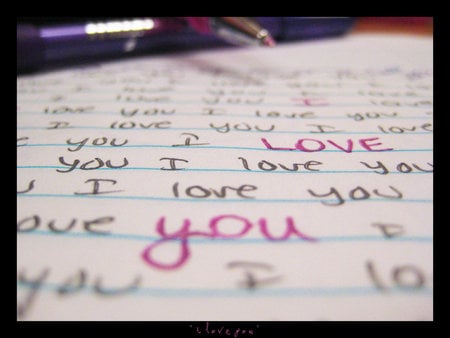 love you I
love you I love you
I love you I love
you I LOVE
you I love you
I love you
love you I
you I lo
"i love you"